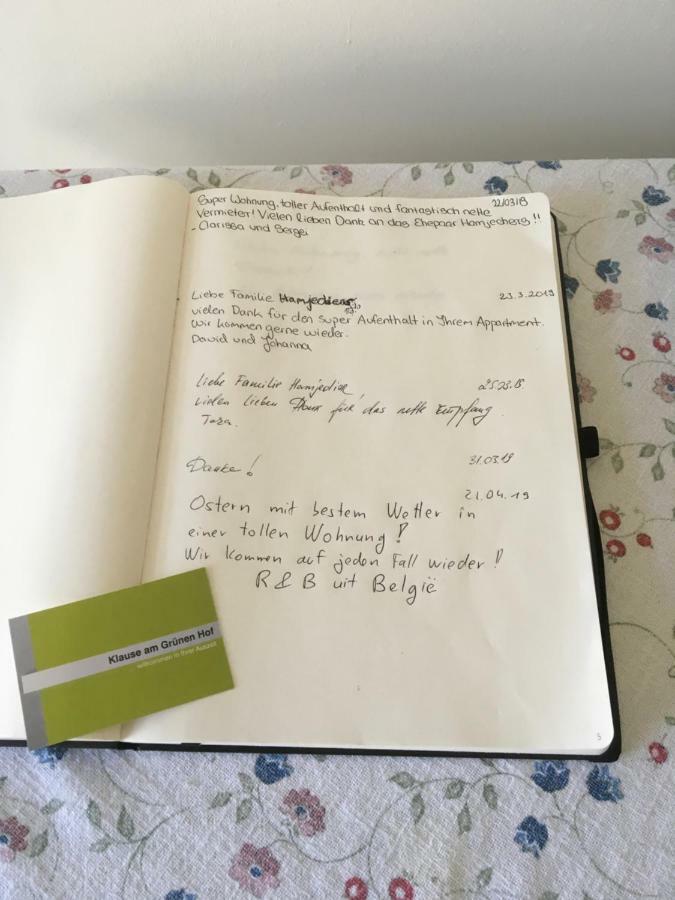 Super Wohnung, toller Aufenthalt und fantastisch nette
22/03/19
Vermieter! Vielen lieben Dank an das Ehepaar Hamjediers!!
- Clarissa und Sergej
Liebe Familie Hamjediers,
23.3.2019
vielen Dank für den super Aufenthalt in Ihrem Appartment.
Wir kommen gerne wieder.
David und Johanna
Liebe Familie Hamjedier,
vielen lieben Dank für das nette Empfang.
Danke!
31.03.19
21.04.19
Ostern mit bestem Wetter in
einer tollen Wohnung!
Wir kommen auf jeden Fall wieder!
R & B uit België
Klause am Grünen Hof
willkommen in Ihrer Auszeit
5